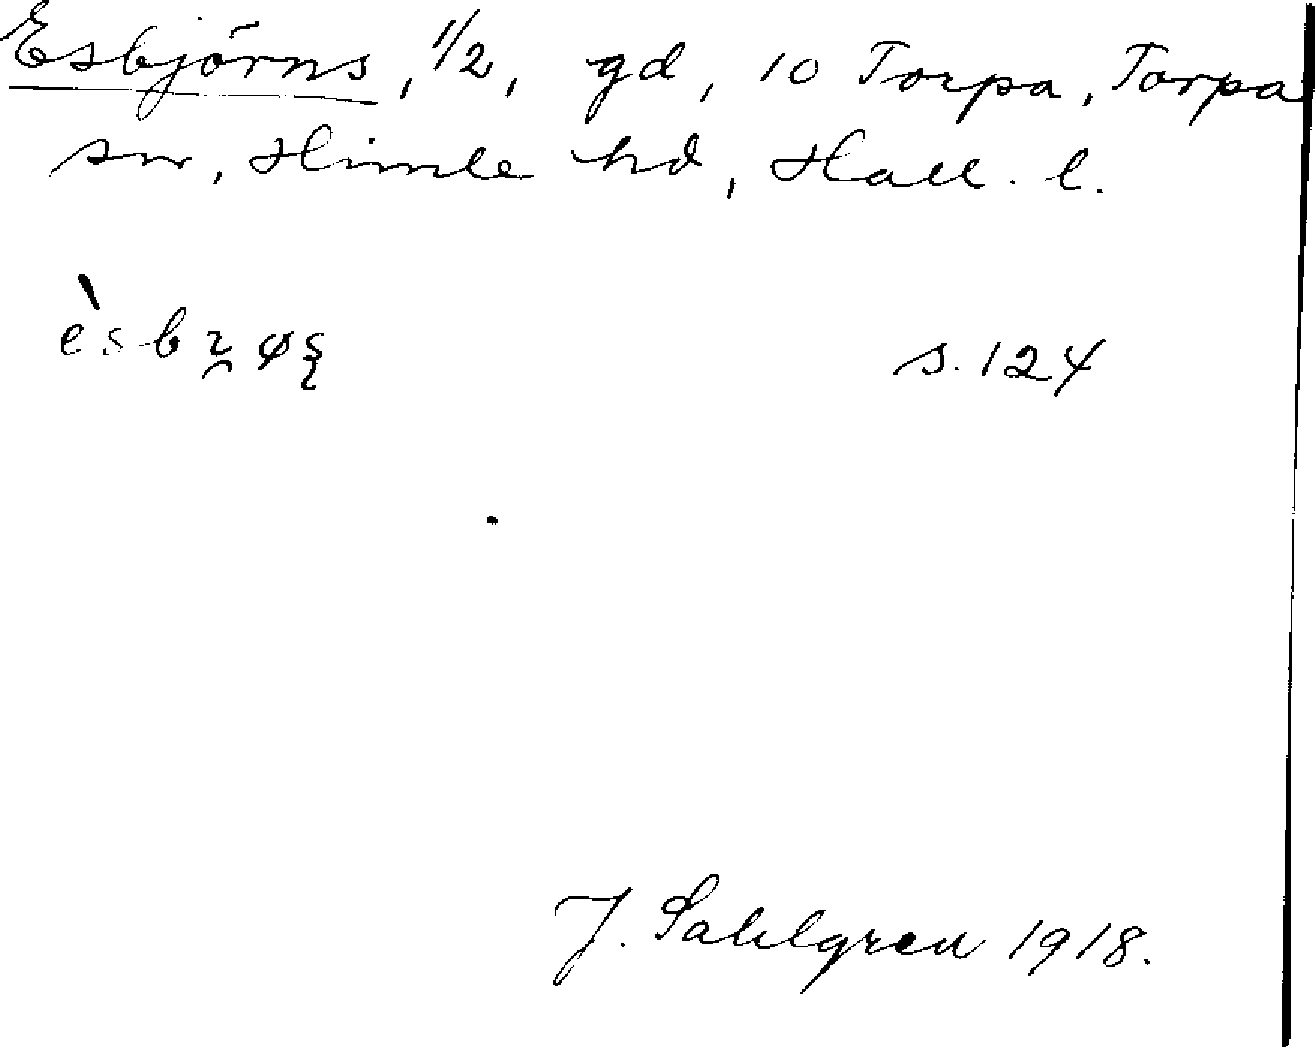 Esbjörns, 1/2, gd, 10 Torpa, Torpa
sn, Himle hd, Hall. l.
s. 124
J. Sahlgren 1918.